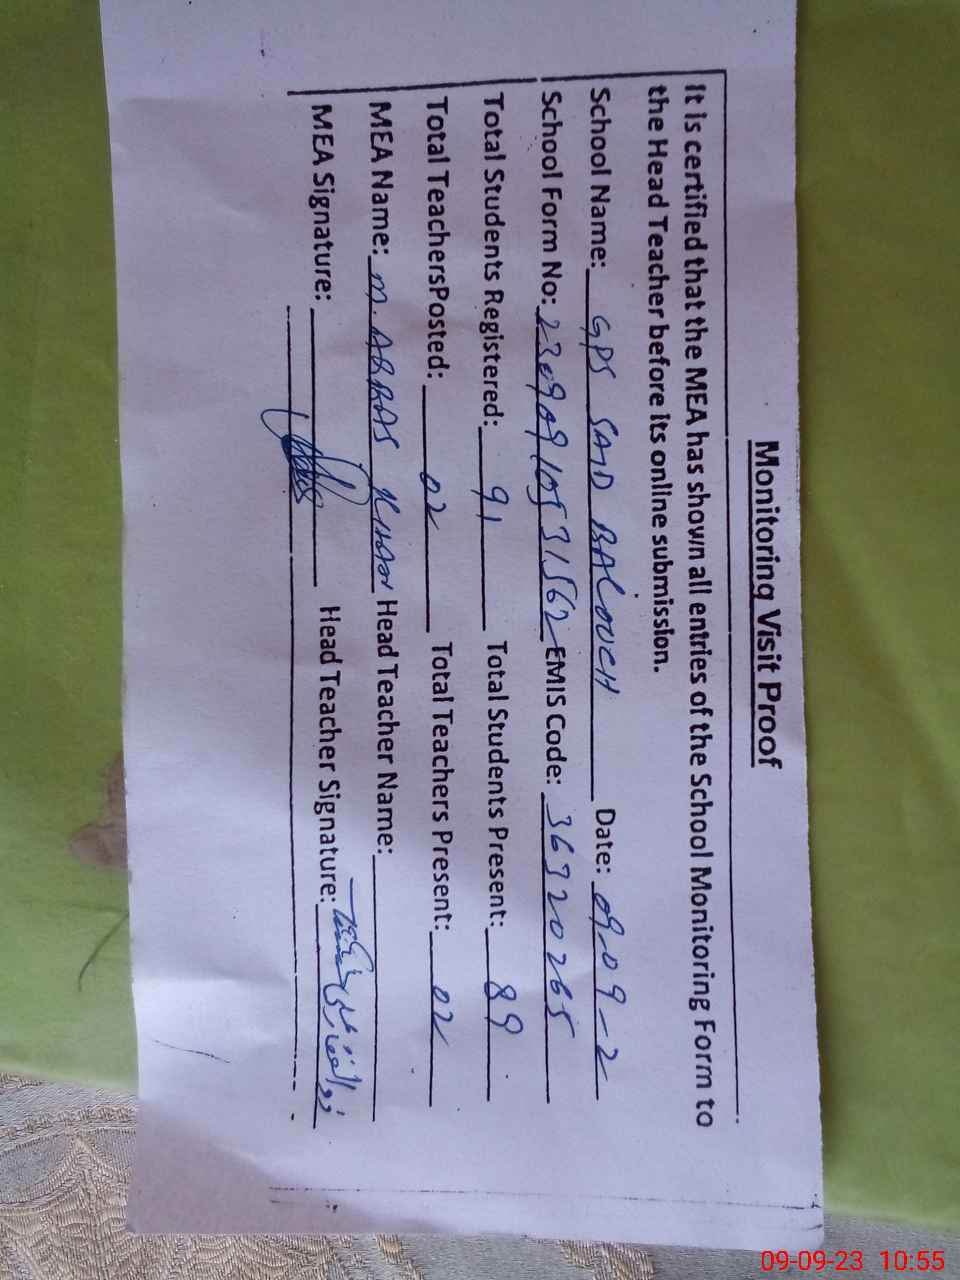 Monitoring Visit Proof
It is certified that the MEA has shown all entries of the School Monitoring Form to
the Head Teacher before its online submission.
School Name: GPS SAID BALOUCH Date: 09-09-2
School Form No: 23090910531562 EMIS Code: 36320265
Total Students Registered: 91 Total Students Present: 89
Total TeachersPosted: 02 Total Teachers Present: 02
MEA Name: M. ABBAS KHAN Head Teacher Name:
MEA Signature: Head Teacher Signature: ذوالفقار علی
09-09-23 10:55